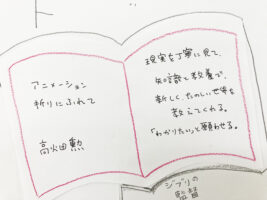 アニメーション
折りにふれて
高畑勲
現実を丁寧に見て、
知識と教養で、
新しく、たのしい世界を
教えてくれる。
「わかりたい」と願わせる。
ジブリの